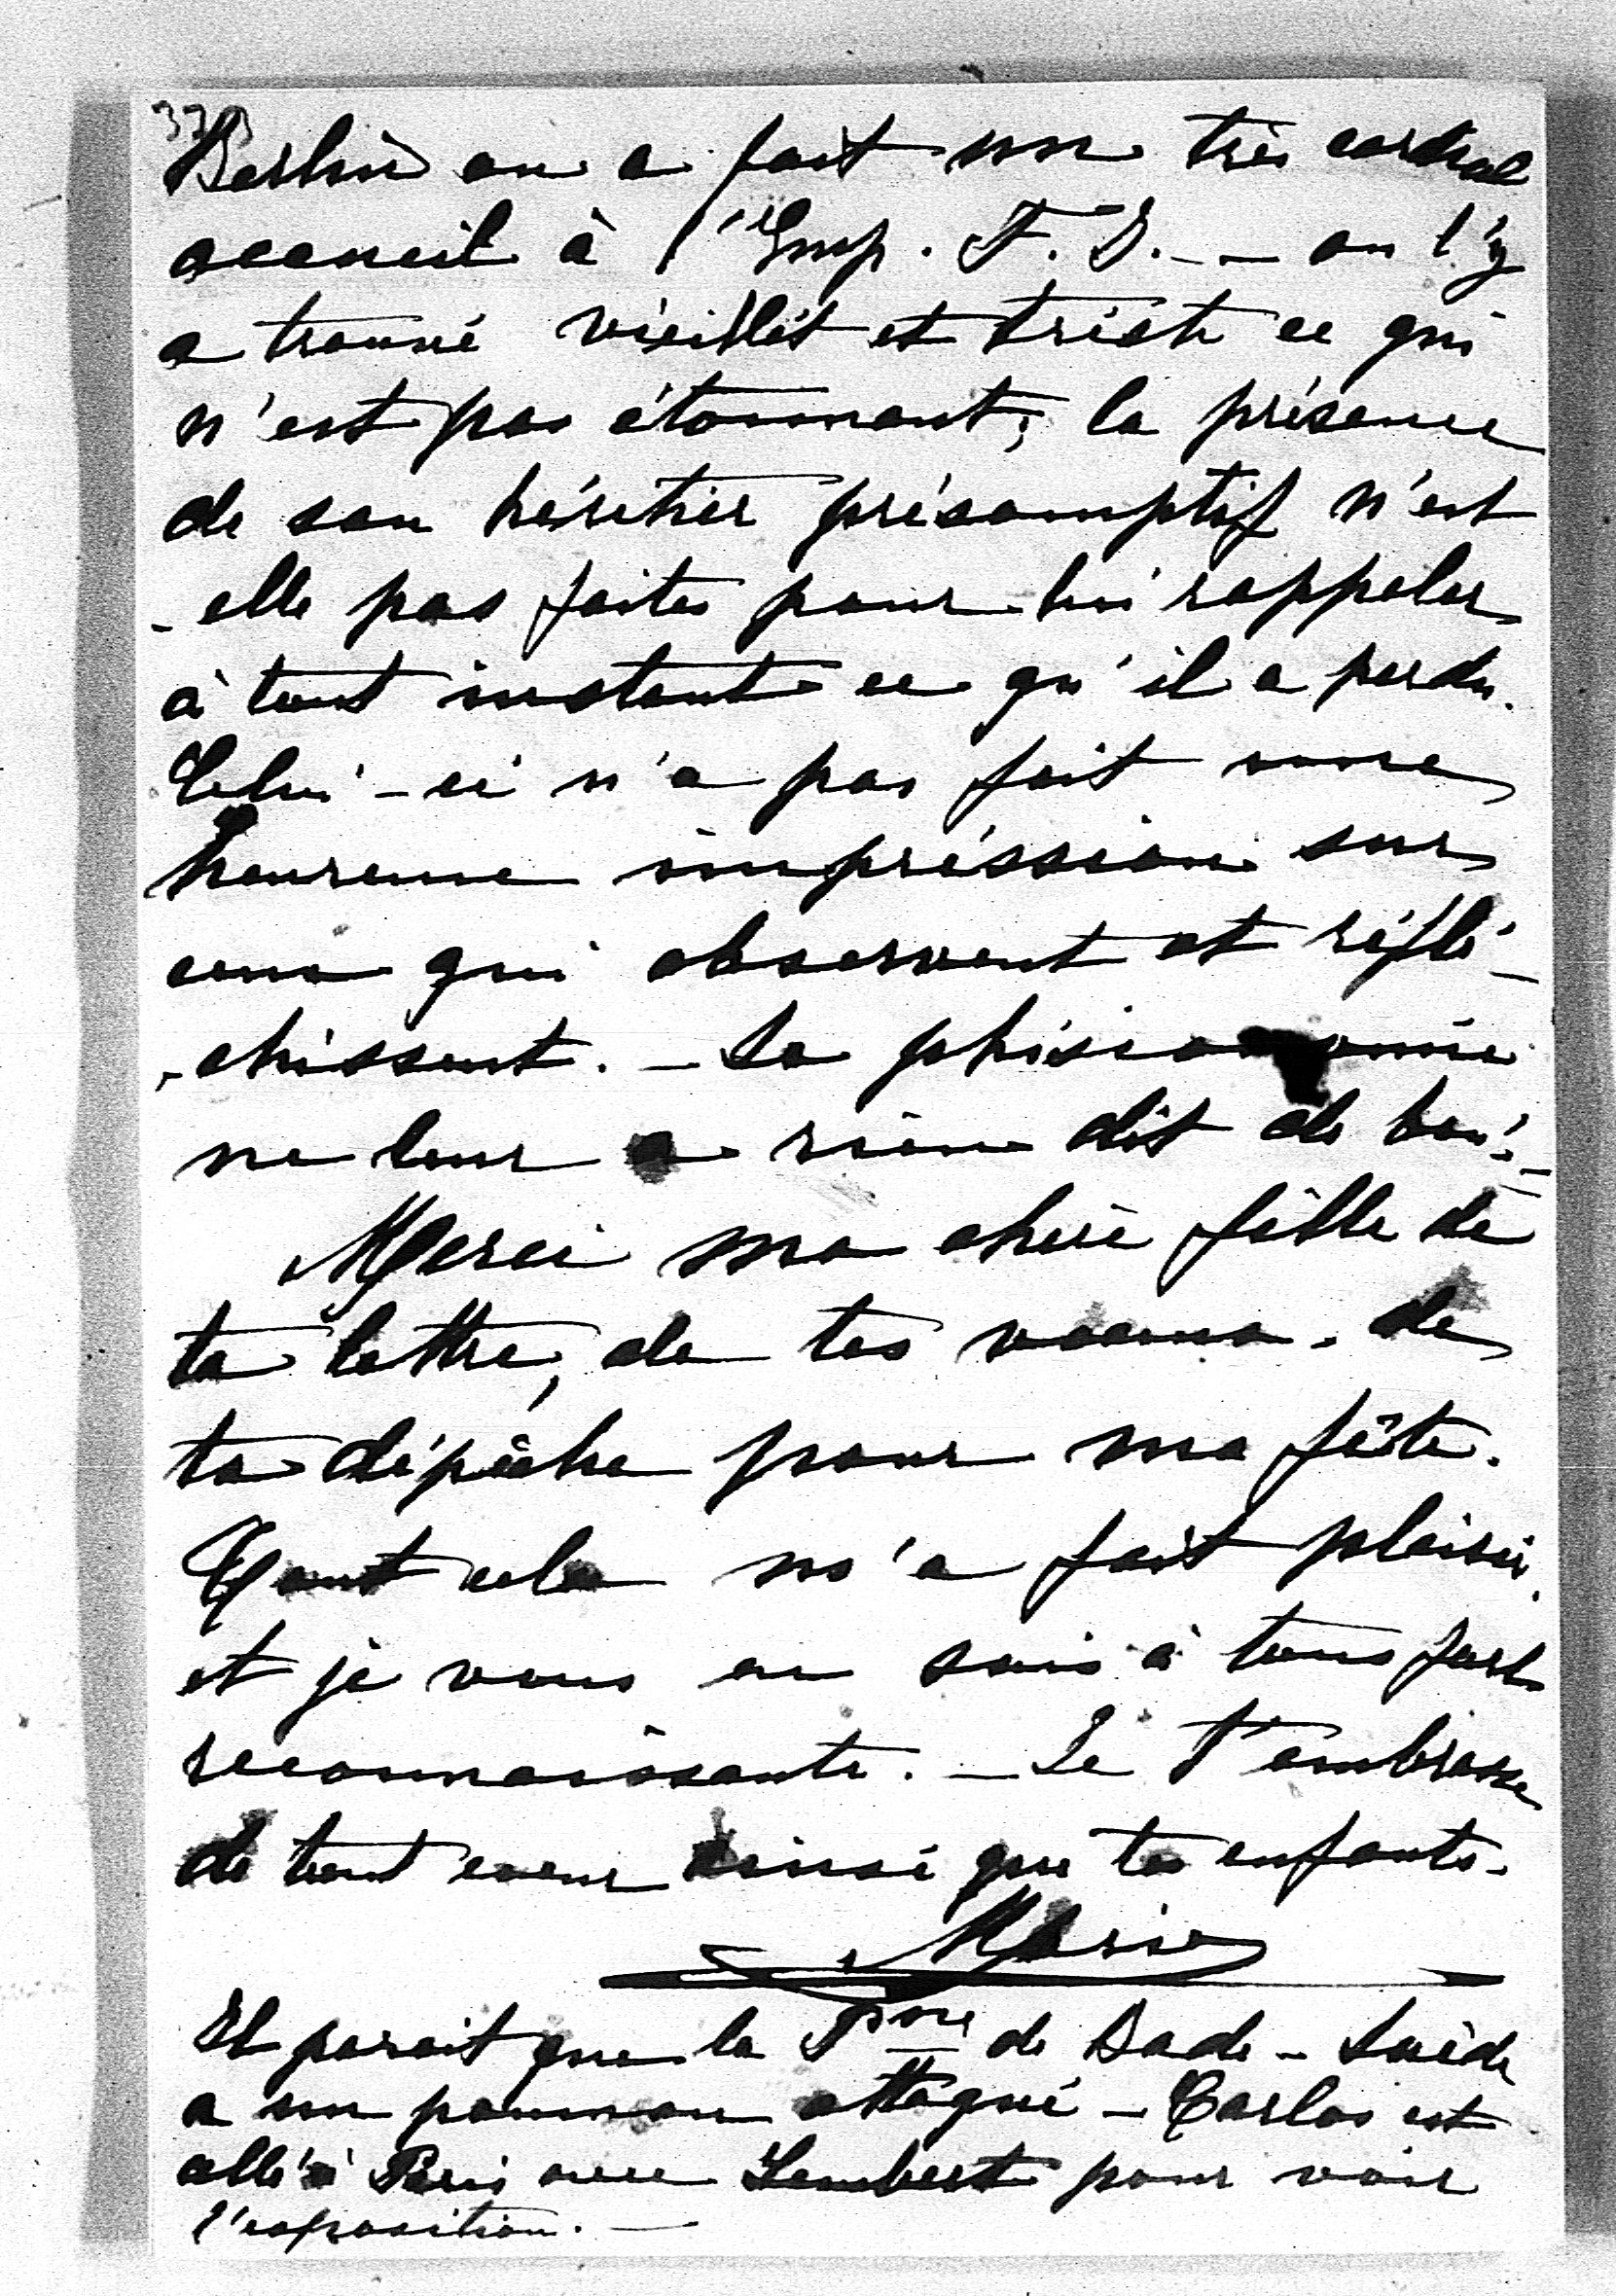 Berlin on a fait un très cordial
accueil à l'Emp. F. J. -- on l'y
a trouvé vieillit et triste ce qui
n'est pas étonnant; la présence
de son héritier présomptif n'est
- elle pas faite pour lui rappeler
à tout instant ce qu'il a perdu.
Celui-ci n'a pas fait une
heureuse impréssion sur
ceux qui observent et réflé-
-chissent. - Sa phisionomie
ne leur a rien dit de bon! -
Merci ma chère fille de
ta lettre, de tes voeux. de
ta dépêche pour ma fête.
Tout cela m'a fait plaisir
et je vous en suis à tous fort
reconnaissante. - Je t'embrasse
de tout coeur ainsi que tes enfants.
Marie
Il parait que la Psse de Bade - Suède
a un poumon attaqué - Carlos est
allé à Paris avec Lambert pour voir
l'exposition. -